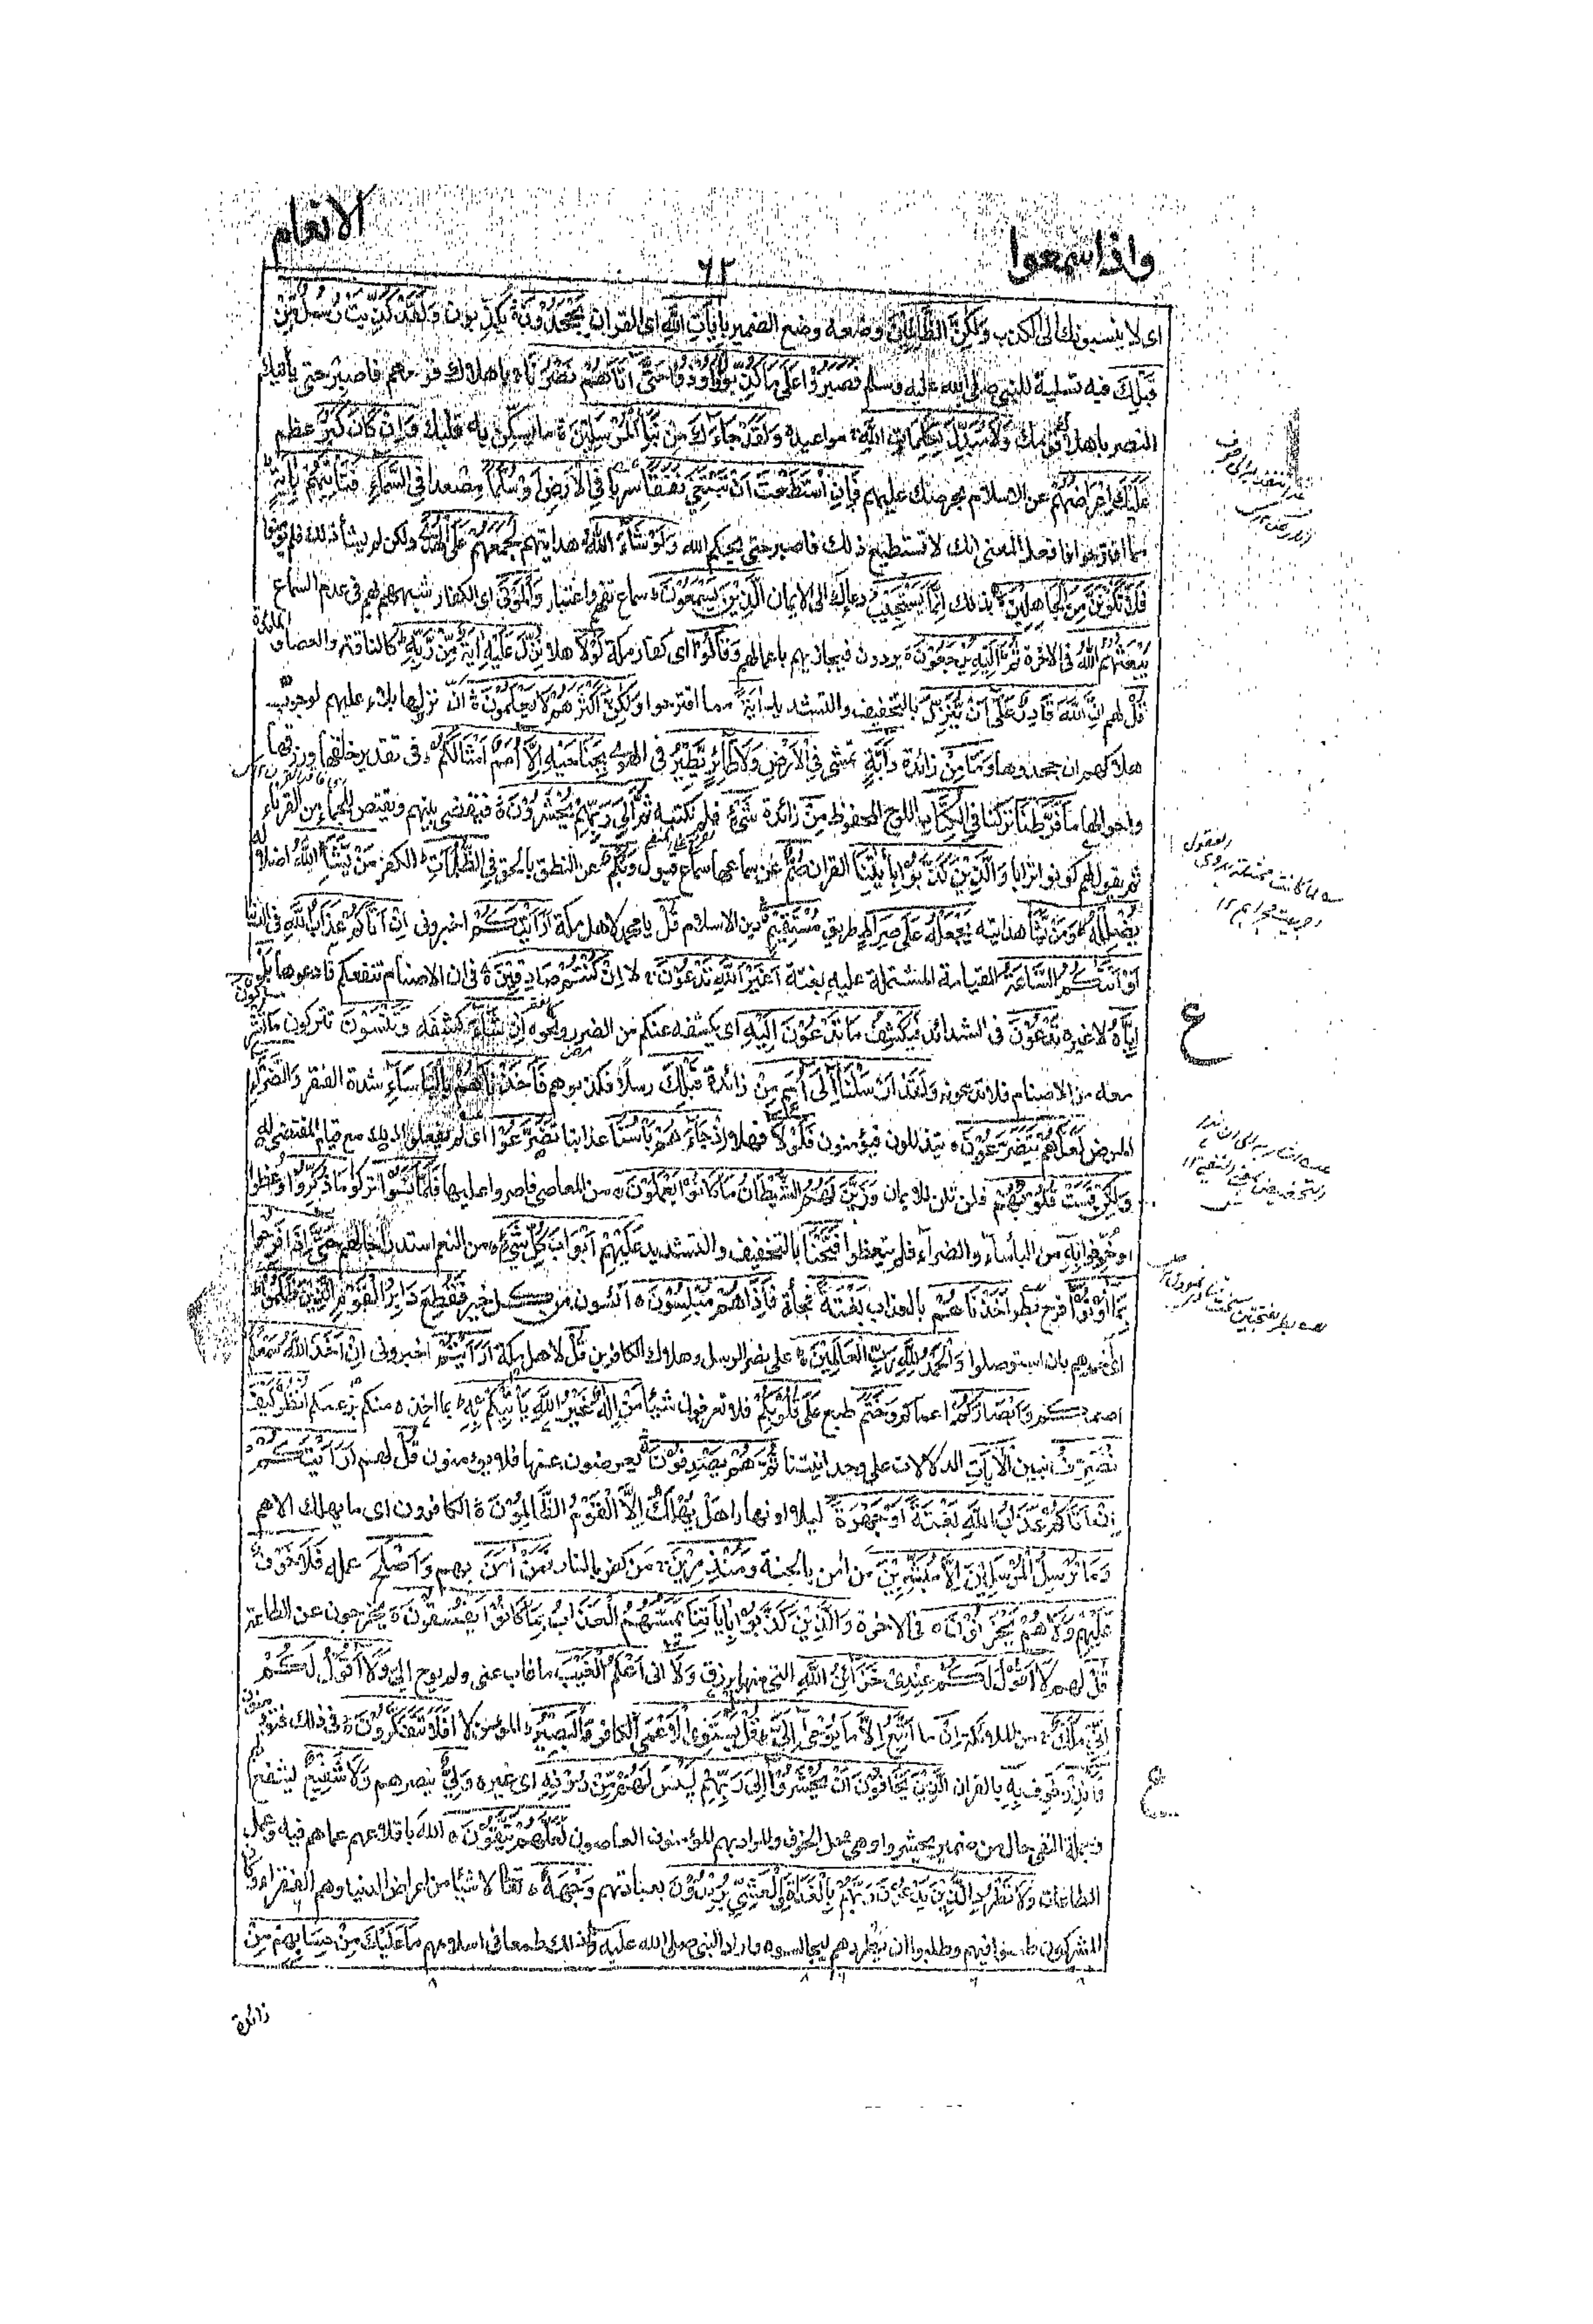 واذا سمعوا
٦٢
الانعام
اى لا ينسبونك الى الكذب وَلٰكِنَّ الظَّالِمِيْنَ وضعه وضع الضمير بِاٰيَاتِ اللّٰهِ اى القران يَجْحَدُوْنَ يكذبون وَلَقَدْ كُذِّبَتْ رُسُلٌ مِّنْ
قَبْلِكَ فيه تسلية للنبى صلى الله عليه وسلم فَصَبَرُوْا عَلٰى مَا كُذِّبُوْا وَاُوْذُوْا حَتّٰى اَتَاهُمْ نَصْرُنَا باهلاك قومهم فاصبر حتى يأتيك
النصر باهلاك قومك وَلَا مُبَدِّلَ لِكَلِمَاتِ اللّٰهِ مواعيده وَلَقَدْ جَاءَكَ مِنْ نَّبَاِ الْمُرْسَلِيْنَ ما يسكن به قلبك وَاِنْ كَانَ كَبُرَ عظم
عَلَيْكَ اِعْرَاضُهُمْ عن الاسلام لحرصك عليهم فَاِنِ اسْتَطَعْتَ اَنْ تَبْتَغِيَ نَفَقًا سربا فِى الْاَرْضِ اَوْ سُلَّمًا مصعدا فِى السَّمَاءِ فَتَأْتِيَهُمْ بِاٰيَةٍ
مما اقترحوا فافعل المعنى انك لا تستطيع ذلك فاصبر حتى يحكم الله وَلَوْ شَاءَ اللّٰهُ هدايتهم لَجَمَعَهُمْ عَلَى الْهُدٰى ولكن لم يشأ ذلك فلم يؤمنوا
فَلَا تَكُوْنَنَّ مِنَ الْجَاهِلِيْنَ بذلك اِنَّمَا يَسْتَجِيْبُ دعاءك الى الايمان الَّذِيْنَ يَسْمَعُوْنَ سماع تفهم واعتبار وَالْمَوْتٰى اى الكفار شبههم بهم فى عدم السماع
يَبْعَثُهُمُ اللّٰهُ فى الاخرة ثُمَّ اِلَيْهِ يُرْجَعُوْنَ يردون فيجازيهم باعمالهم وَقَالُوْا اى كفار مكة لَوْلَا هلا نُزِّلَ عَلَيْهِ اٰيَةٌ مِّنْ رَّبِّهِ كالناقة والعصا و
المائدة
قُلْ لهم اِنَّ اللّٰهَ قَادِرٌ عَلٰى اَنْ يُّنَزِّلَ بالتخفيف والتشديد اٰيَةً مما اقترحوا وَلٰكِنَّ اَكْثَرَهُمْ لَا يَعْلَمُوْنَ ان نزولها بلاء عليهم لوجوب
هلاكهم ان جحدوها وَمَا مِنْ زائدة دَابَّةٍ تمشى فِى الْاَرْضِ وَلَا طَائِرٍ يَّطِيْرُ فى الهواء بِجَنَاحَيْهِ اِلَّا اُمَمٌ اَمْثَالُكُمْ فى تقدير خلقها ورزقها
واحوالها مَا فَرَّطْنَا تركنا فِى الْكِتَابِ اللوح المحفوظ مِنْ زائدة شَيْءٍ فلم نكتبه ثُمَّ اِلٰى رَبِّهِمْ يُحْشَرُوْنَ فيقضى بينهم ويقتص للجماء من القرناء
ثم يقول لهم كونوا ترابا وَالَّذِيْنَ كَذَّبُوْا بِاٰيٰتِنَا القران صُمٌّ عن سماعها سماع قبول وَّبُكْمٌ عن النطق بالحق فِى الظُّلُمَاتِ الكفر مَنْ يَّشَأِ اللّٰهُ اضلاله
يُضْلِلْهُ وَمَنْ يَّشَأْ هدايته يَجْعَلْهُ عَلٰى صِرَاطٍ طريق مُسْتَقِيْمٍ دين الاسلام قُلْ يا محمد لاهل مكة اَرَاَيْتَكُمْ اخبرونى اِنْ اَتَاكُمْ عَذَابُ اللّٰهِ فى الدنيا
اَوْ اَتَتْكُمُ السَّاعَةُ القيامة المشتملة عليه بغتة اَغَيْرَ اللّٰهِ تَدْعُوْنَ لا اِنْ كُنْتُمْ صَادِقِيْنَ فى ان الاصنام تنفعكم فادعوها بَلْ
اِيَّاهُ لا غيره تَدْعُوْنَ فى الشدائد فَيَكْشِفُ مَا تَدْعُوْنَ اِلَيْهِ اى يكشفه عنكم من الضر ونحوه اِنْ شَاءَ كشفه وَتَنْسَوْنَ تتركون مَا تُشْرِكُوْنَ
معه من الاصنام فلا تدعونه وَلَقَدْ اَرْسَلْنَا اِلٰى اُمَمٍ مِّنْ زائدة قَبْلِكَ رسلا فكذبوهم فَاَخَذْنَاهُمْ بِالْبَاْسَاءِ شدة الفقر وَالضَّرَّاءِ
المرض لَعَلَّهُمْ يَتَضَرَّعُوْنَ يتذللون فيؤمنون فَلَوْلَا فهلا اِذْ جَاءَهُمْ بَاْسُنَا عذابنا تَضَرَّعُوْا اى لم يفعلوا ذلك مع قيام المقتضى له
وَلٰكِنْ قَسَتْ قُلُوْبُهُمْ فلم تلن للايمان وَزَيَّنَ لَهُمُ الشَّيْطَانُ مَا كَانُوْا يَعْمَلُوْنَ من المعاصى فاصروا عليها فَلَمَّا نَسُوْا تركوا مَا ذُكِّرُوْا وعظوا
وخوفوا بِهِ من البأساء والضراء فلم يتعظوا فَتَحْنَا بالتخفيف والتشديد عَلَيْهِمْ اَبْوَابَ كُلِّ شَيْءٍ من النعم استدراجا لهم حَتّٰى اِذَا فَرِحُوْا
بِمَا اُوْتُوْا فرح بطر اَخَذْنَاهُمْ بالعذاب بَغْتَةً فجأة فَاِذَا هُمْ مُّبْلِسُوْنَ ائسون من كل خير فَقُطِعَ دَابِرُ الْقَوْمِ الَّذِيْنَ ظَلَمُوْا
اى اخرهم بان استوصلوا وَالْحَمْدُ لِلّٰهِ رَبِّ الْعَالَمِيْنَ على نصر الرسل وهلاك الكافرين قُلْ لاهل مكة اَرَاَيْتُمْ اخبرونى اِنْ اَخَذَ اللّٰهُ سَمْعَكُمْ
اصمكم وَاَبْصَارَكُمْ اعماكم وَخَتَمَ طبع عَلٰى قُلُوْبِكُمْ فلا تعرفون شيئا مَنْ اِلٰهٌ غَيْرُ اللّٰهِ يَأْتِيْكُمْ بِهِ بما اخذه منكم بزعمكم اُنْظُرْ كَيْفَ
نُصَرِّفُ نبين الْاٰيَاتِ الدلالات على وحدانيتنا ثُمَّ هُمْ يَصْدِفُوْنَ يعرضون عنها فلا يؤمنون قُلْ لهم اَرَاَيْتَكُمْ
اِنْ اَتَاكُمْ عَذَابُ اللّٰهِ بَغْتَةً اَوْ جَهْرَةً ليلا او نهارا هَلْ يُهْلَكُ اِلَّا الْقَوْمُ الظَّالِمُوْنَ الكافرون اى ما يهلك الا هم
وَمَا نُرْسِلُ الْمُرْسَلِيْنَ اِلَّا مُبَشِّرِيْنَ من امن بالجنة وَمُنْذِرِيْنَ من كفر بالنار فَمَنْ اٰمَنَ بهم وَاَصْلَحَ عمله فَلَا خَوْفٌ
عَلَيْهِمْ وَلَا هُمْ يَحْزَنُوْنَ فى الاخرة وَالَّذِيْنَ كَذَّبُوْا بِاٰيَاتِنَا يَمَسُّهُمُ الْعَذَابُ بِمَا كَانُوْا يَفْسُقُوْنَ يخرجون عن الطاعة
قُلْ لهم لَا اَقُوْلُ لَكُمْ عِنْدِىْ خَزَائِنُ اللّٰهِ التى منها يرزق وَلَا انى اَعْلَمُ الْغَيْبَ ما غاب عنى ولم يوح الى وَلَا اَقُوْلُ لَكُمْ
اِنِّىْ مَلَكٌ من الملائكة اِنْ ما اَتَّبِعُ اِلَّا مَا يُوْحٰى اِلَيَّ قُلْ هَلْ يَسْتَوِى الْاَعْمٰى الكافر وَالْبَصِيْرُ المؤمن لا اَفَلَا تَتَفَكَّرُوْنَ فى ذلك فتؤمنون
وَاَنْذِرْ خوف بِهِ بالقران الَّذِيْنَ يَخَافُوْنَ اَنْ يُحْشَرُوْا اِلٰى رَبِّهِمْ لَيْسَ لَهُمْ مِّنْ دُوْنِهِ اى غيره وَلِيٌّ ينصرهم وَلَا شَفِيْعٌ يشفع لهم
وجملة النفى حال من ضمير يحشروا وهى محل الخوف والمراد بهم المؤمنون العاصون لَعَلَّهُمْ يَتَّقُوْنَ الله باقلاعهم عما هم فيه وعمل
الطاعات وَلَا تَطْرُدِ الَّذِيْنَ يَدْعُوْنَ رَبَّهُمْ بِالْغَدٰوةِ وَالْعَشِيِّ يُرِيْدُوْنَ بعبادتهم وَجْهَهُ تعالى لا شيئا من اعراض الدنيا وهم الفقراء وكان
المشركون طعنوا فيهم وطلبوا ان يطردهم ليجالسوه واراد النبى صلى الله عليه وسلم ذلك طمعا فى اسلامهم مَا عَلَيْكَ مِنْ حِسَابِهِمْ مِّنْ
زائدة
ع
ع